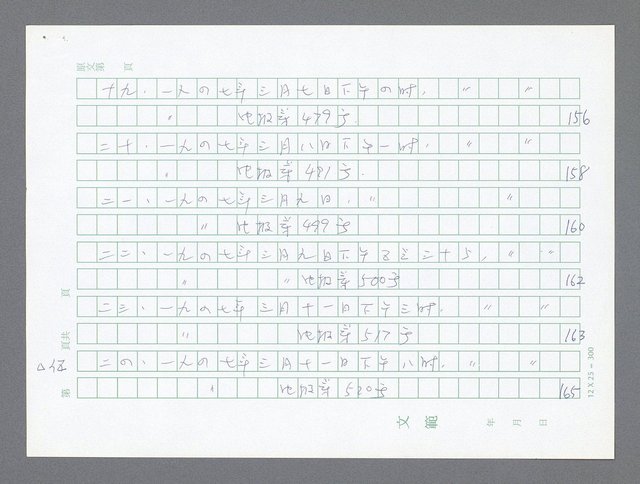 原文第　頁
十九、一九四七年三月七日下午四时，〃　〃
〃　化报第479号　156
二十、一九四七年三月八日下午一时，〃　〃
〃　化报第481号．　158
二一、一九四七年三月九日，〃　〃
〃　化报第499号　160
二二、一九四七年三月九日下午　三十　，〃　〃
〃　〃化报第500号　162
二三、一九四七年三月十一日下午三时，〃　〃
〃　化报第517号　163
二四、一九四七年三月十一日下午八时，〃　〃
〃　化报第520号　165
第　頁共　頁
12×25＝300
文範
年　月　日